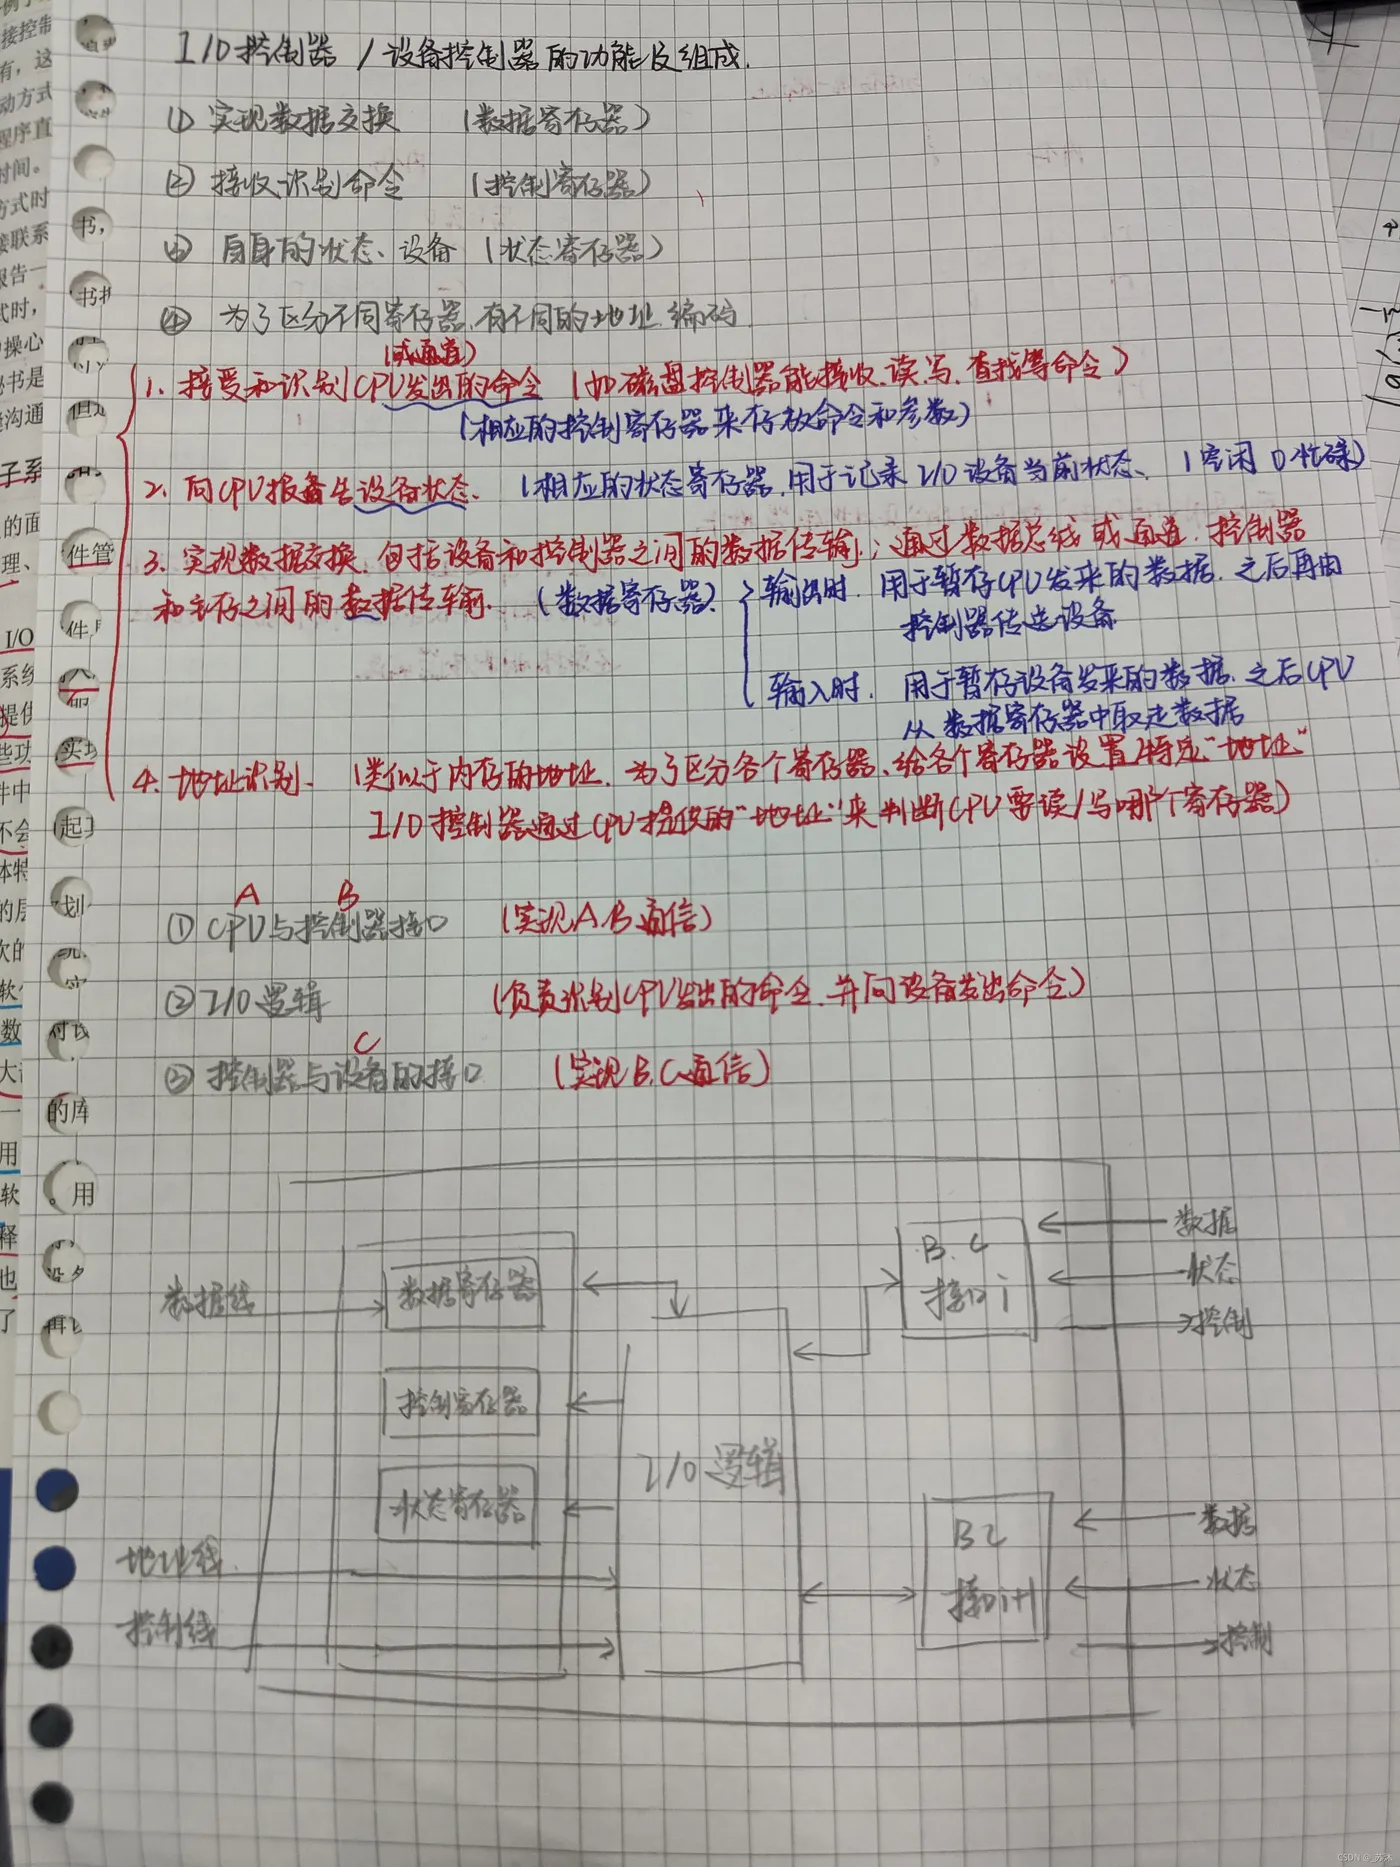 I/O控制器 / 设备控制器的功能及组成.
① 实现数据交换 (数据寄存器)
② 接收识别命令 (控制寄存器)
③ 自身的状态、设备 (状态寄存器)
④ 为了区分不同寄存器,有不同的地址编码.
(或通道)
1. 接受和识别CPU发出的命令 (如磁盘控制器能接收、读、写、查找等命令)
(相应的控制寄存器来存放命令和参数)
2. 向CPU报备告设备状态、 (相应的状态寄存器,用于记录I/O设备当前状态、 1空闲 0忙碌)
3. 实现数据交换,包括设备和控制器之间的数据传输;通过数据总线或通道,控制器
和主存之间的数据传输. (数据寄存器). 输出时. 用于暂存CPU发来的数据.之后再由
控制器传送设备
输入时. 用于暂存设备发来的数据.之后CPU
从数据寄存器中取走数据
4. 地址识别. (类似于内存的地址.为了区分各个寄存器、给各个寄存器设置特定"地址"
I/O控制器通过CPU提供的"地址"来判断CPU要读/写哪个寄存器)
A B
① CPU与控制器接口 (实现A.B通信)
② I/O逻辑 (负责识别CPU发出的命令,并向设备发出命令)
C
③ 控制器与设备的接口 (实现B.C通信)
数据线
数据寄存器
控制寄存器
状态寄存器
地址线
控制线
I/O逻辑
B.C
接口i
数据
状态
控制
BC
接口i+1
数据
状态
控制
书,
件管
划
的库
用
CSDN @_苏沐